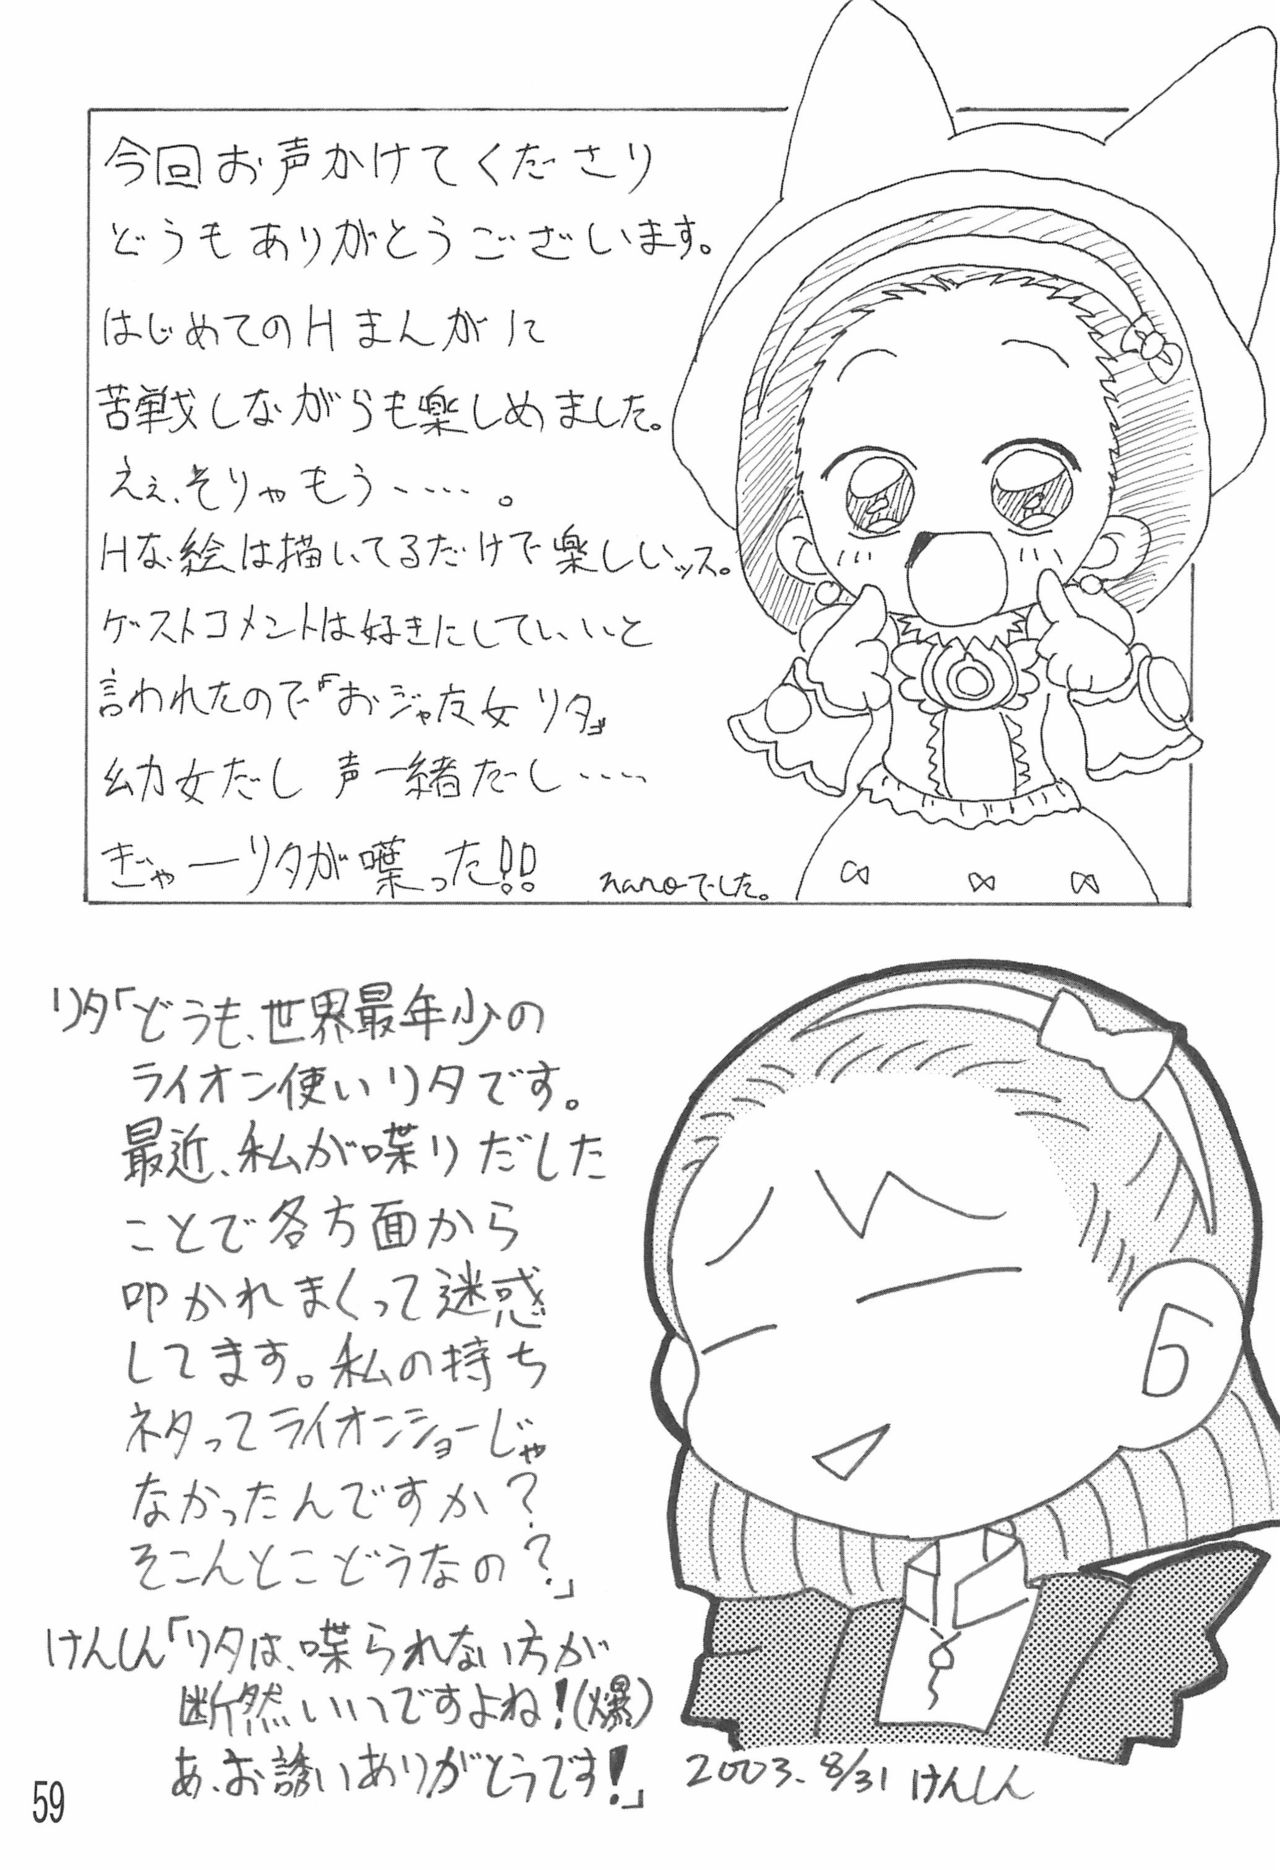 今回お声かけてくださり
どうもありがとうございます。
はじめてのHまんがに
苦戦しながらも楽しめました。
えぇ、そりゃもう・・・・・。
Hな絵は描いてるだけで楽しいッス。
ゲストコメントは好きにしていいと
言われたので『おジャ友女リタ』
幼女だし 声一緒だし・・・・
ぎゃーリタが喋った!!
nanoでした。
リタ「どうも、世界最年少の
ライオン使いリタです。
最近、私が喋りだした
ことで各方面から
叩かれまくって迷惑
してます。私の持ち
ネタってライオンショーじゃ
なかったんですか?
そこんとこどうなの?」
けんしん「リタは、喋られない方が
断然いいですよね!(爆)
あ、お誘いありがとうです!」
2003.8/31 けんしん
59